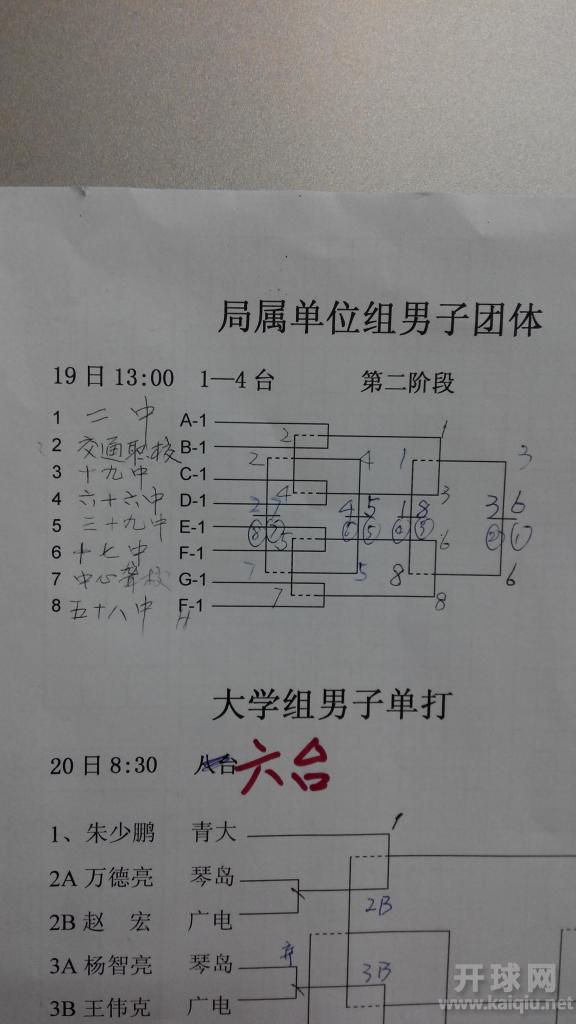 局属单位组男子团体
19日13:00 1—4台 第二阶段
1 二中 A-1
2 交通职校 B-1
3 十九中 C-1
4 六十六中 D-1
5 三十九中 E-1
6 十七中 F-1
7 中心聋校 G-1
8 五十八中 F-1 H
2 4 1 1 3
2 4 3
2 7 4 5 1 8 3 6
⑧ ⑦ ⑥ ⑤ ④ ③ ② ①
5 6
7 5 8 6
7 8
大学组男子单打
20日8:30 六台
1、朱少鹏 青大 1
2A 万德亮 琴岛
2B 赵 宏 广电 2B
3A 杨智亮 琴岛 弃
3B 王伟克 广电 3B
开球网
www.kaiqiu.net